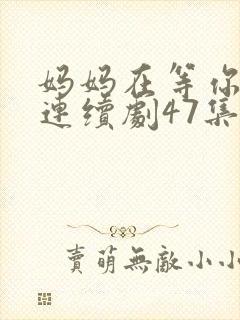 妈妈在等你
連續劇47集
賣萌無敵小小